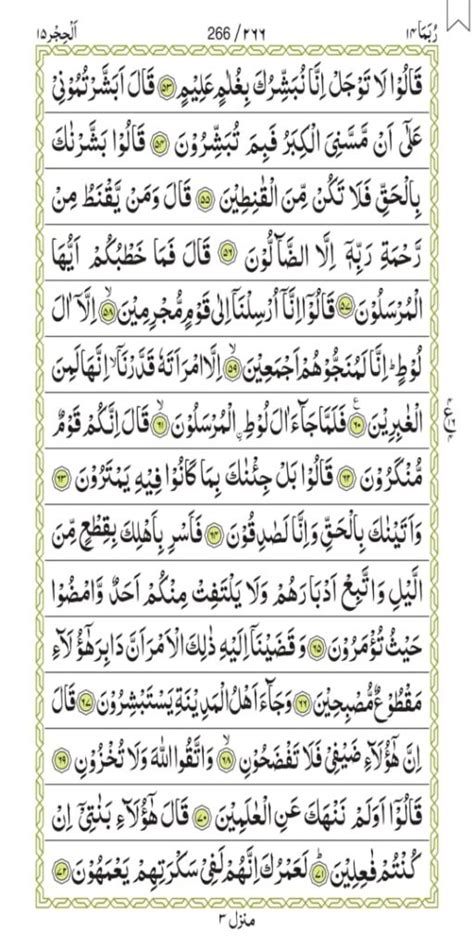 رُبَمَا ١٤ 266 / ٢٦٦ اَلْحِجْر ١٥
قَالُوْا لَا تَوْجَلْ اِنَّا نُبَشِّرُكَ بِغُلٰمٍ عَلِيْمٍ ۝٥٣ قَالَ اَبَشَّرْتُمُوْنِيْ
عَلٰٓى اَنْ مَّسَّنِيَ الْكِبَرُ فَبِمَ تُبَشِّرُوْنَ ۝٥٤ قَالُوْا بَشَّرْنٰكَ
بِالْحَقِّ فَلَا تَكُنْ مِّنَ الْقٰنِطِيْنَ ۝٥٥ قَالَ وَمَنْ يَّقْنَطُ مِنْ
رَّحْمَةِ رَبِّهٖٓ اِلَّا الضَّآلُّوْنَ ۝٥٦ قَالَ فَمَا خَطْبُكُمْ اَيُّهَا
الْمُرْسَلُوْنَ ۝٥٧ قَالُوْٓا اِنَّآ اُرْسِلْنَآ اِلٰى قَوْمٍ مُّجْرِمِيْنَ ۝٥٨ۙ اِلَّآ اٰلَ
لُوْطٍ ؕ اِنَّا لَمُنَجُّوْهُمْ اَجْمَعِيْنَ ۝٥٩ۙ اِلَّا امْرَاَتَهٗ قَدَّرْنَآ ۙ اِنَّهَا لَمِنَ
الْغٰبِرِيْنَ ۝٦٠ فَلَمَّا جَآءَ اٰلَ لُوْطِ ۨ الْمُرْسَلُوْنَ ۝٦١ۙ قَالَ اِنَّكُمْ قَوْمٌ
مُّنْكَرُوْنَ ۝٦٢ قَالُوْا بَلْ جِئْنٰكَ بِمَا كَانُوْا فِيْهِ يَمْتَرُوْنَ ۝٦٣
وَاَتَيْنٰكَ بِالْحَقِّ وَاِنَّا لَصٰدِقُوْنَ ۝٦٤ فَاَسْرِ بِاَهْلِكَ بِقِطْعٍ مِّنَ
الَّيْلِ وَاتَّبِعْ اَدْبَارَهُمْ وَلَا يَلْتَفِتْ مِنْكُمْ اَحَدٌ وَّامْضُوْا
حَيْثُ تُؤْمَرُوْنَ ۝٦٥ وَقَضَيْنَآ اِلَيْهِ ذٰلِكَ الْاَمْرَ اَنَّ دَابِرَ هٰٓؤُلَآءِ
مَقْطُوْعٌ مُّصْبِحِيْنَ ۝٦٦ وَجَآءَ اَهْلُ الْمَدِيْنَةِ يَسْتَبْشِرُوْنَ ۝٦٧ قَالَ
اِنَّ هٰٓؤُلَآءِ ضَيْفِيْ فَلَا تَفْضَحُوْنِ ۝٦٨ۙ وَاتَّقُوا اللّٰهَ وَلَا تُخْزُوْنِ ۝٦٩
قَالُوْٓا اَوَلَمْ نَنْهَكَ عَنِ الْعٰلَمِيْنَ ۝٧٠ قَالَ هٰٓؤُلَآءِ بَنٰتِيْٓ اِنْ
كُنْتُمْ فٰعِلِيْنَ ۝٧١ؕ لَعَمْرُكَ اِنَّهُمْ لَفِيْ سَكْرَتِهِمْ يَعْمَهُوْنَ ۝٧٢
منزل ٣